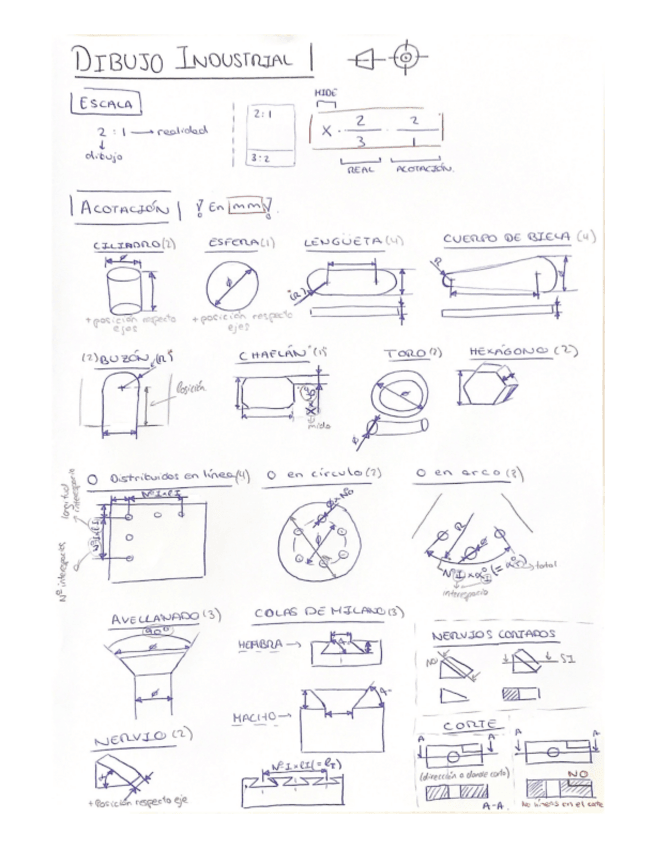 DIBUJO INDUSTRIAL
ESCALA
2 : 1 → realidad
dibujo
2:1
3:2
MIDE
X · 2/3 · 2/1
REAL ACOTACIÓN
ACOTACIÓN ¡ En mm !
CILINDRO (2) ESFERA (1) LENGÜETA (4) CUERPO DE BIELA (4)
+ posición respecto ejes
+ posición respecto ejes
(2) BUZÓN (R) CHAFLÁN (1) TORO (2) HEXÁGONO (2)
Posición
X x 45°
mido
O Distribuidos en línea (4) O en círculo (3) O en arco (2)
longitud interespacio
Nº interespacios
Nº I x lI
Nº I x lI
Ø x Nº
R
Nº I x αºI (= αºT) → total
interespacio
AVELLANADO (3) COLAS DE MILANO (3)
90º
HEMBRA →
MACHO →
Nº I x lI (= lT)
NERVIO (2)
+ Posición respecto eje
NERVIOS CORTADOS
NO SI
CORTE
A A A A
(dirección a donde corto)
A-A
NO
No líneas en el corte